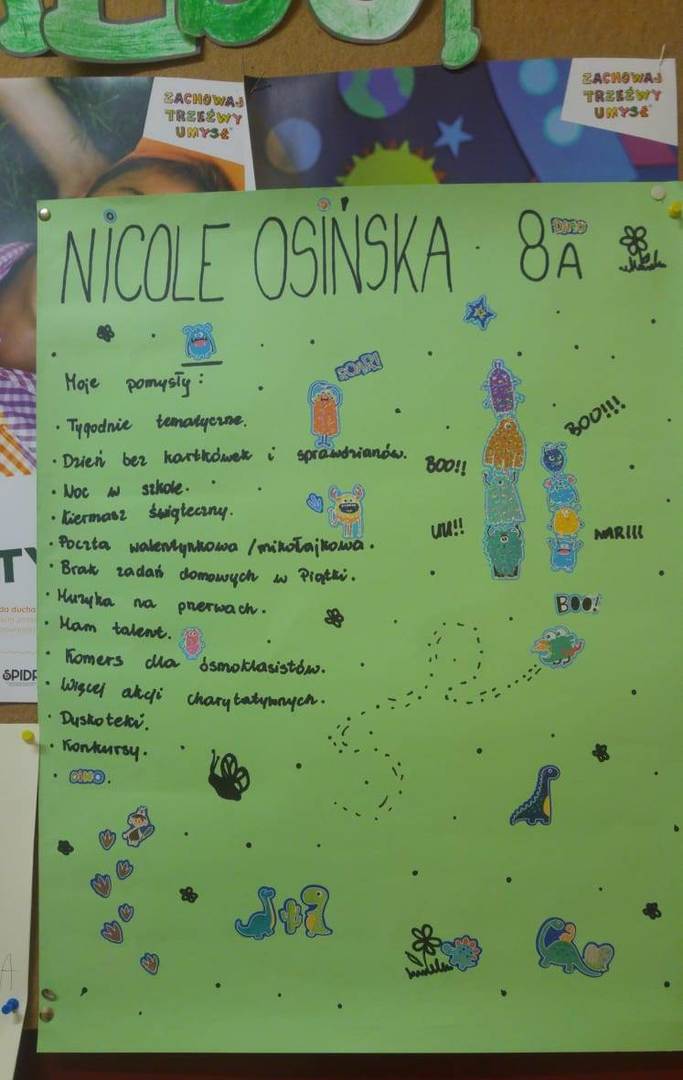 ZACHOWAJ
TRZEŹWY
UMYSŁ
ZACHOWAJ
TRZEŹWY
UMYSŁ
NICOLE OSIŃSKA 8A
DINO
Moje pomysły:
ROAR!
• Tygodnie tematyczne.
• Dzień bez kartkówek i sprawdzianów.
• Noc w szkole.
• Kiermasz świąteczny.
• Poczta walentynkowa / mikołajkowa.
• Brak zadań domowych w Piątki.
• Muzyka na przerwach.
• Mam talent.
• Komers dla ósmoklasistów.
• Więcej akcji charytatywnych.
• Dyskoteki.
• Konkursy.
DINO
BOO!!!
BOO!!
UU!!
WAR!!!
BOO!
TY
A